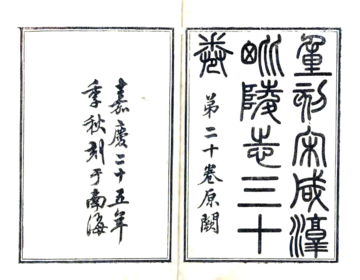 重刊宋咸淳
毗陵志三十
卷
第二十卷原闕
嘉慶二十五年
季秋刻于南海